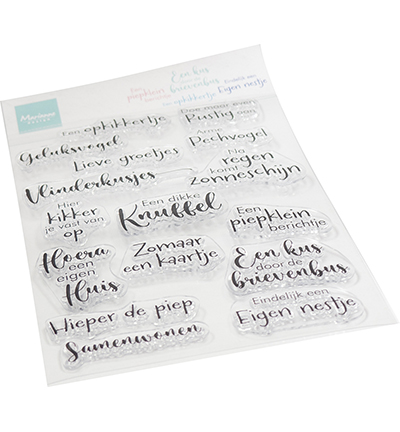 Marianne
DESIGN
Een
piepklein
berichtje
Een kus
door de
brievenbus
Eindelijk een
Een opkikkertje
Eigen nestje
Een opkikkertje
Doe maar even
Rustig aan
Geluksvogel
Arme
Pechvogel
Lieve groetjes
Na
regen
komt
Zonneschijn
Vlinderkusjes
Hier
kikker
je vast van
op
Een dikke
Knuffel
Een
piepklein
berichtje
Hoera
een
eigen
Huis
Zomaar
een kaartje
Een kus
door de
brievenbus
Hieper de piep
Eindelijk een
Eigen nestje
Samenwonen